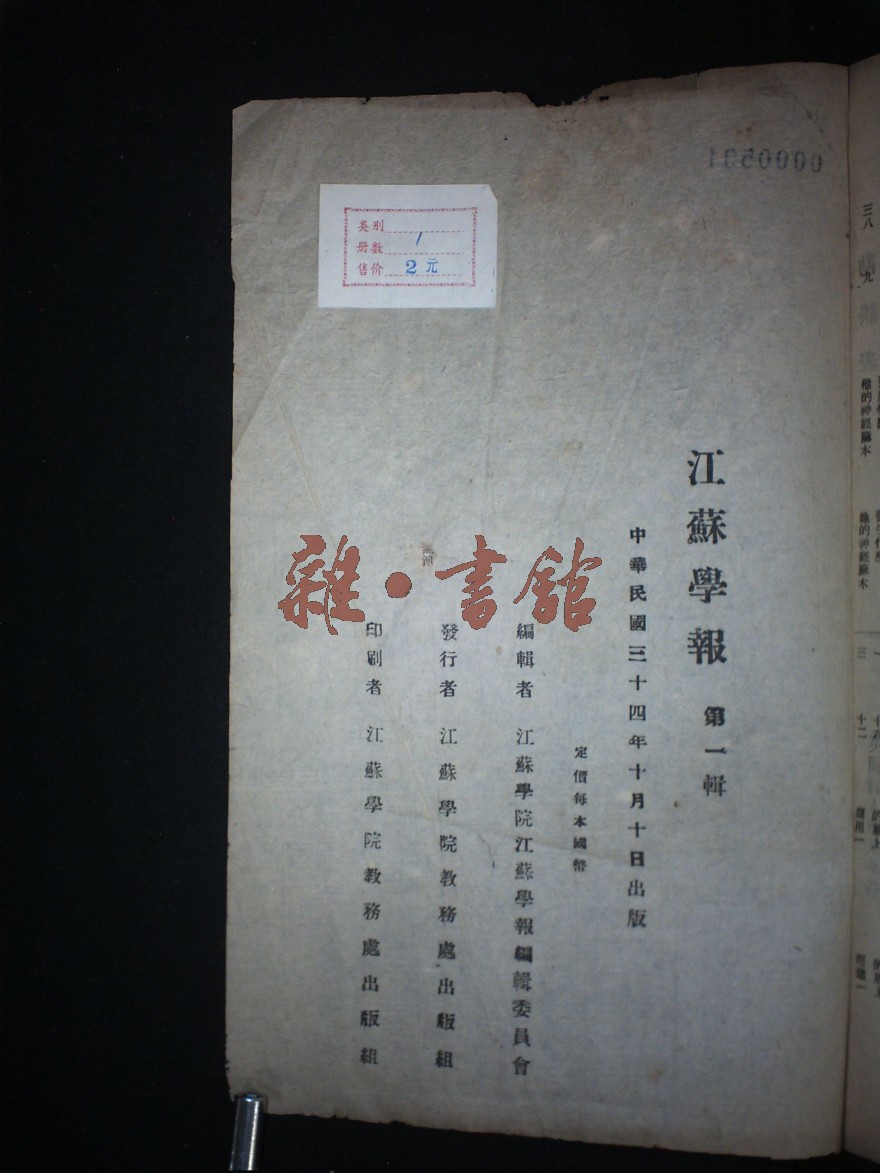 江蘇學報 第一輯
中華民國三十四年十月十日出版
定價每本國幣
編輯者 江蘇學院江蘇學報編輯委員會
發行者 江蘇學院教務處出版組
印刷者 江蘇學院教務處出版組
类别
册数 1
售价 2元
雜·書館
三八
九
他的神經麻木
他的神經麻木
一
三
十二